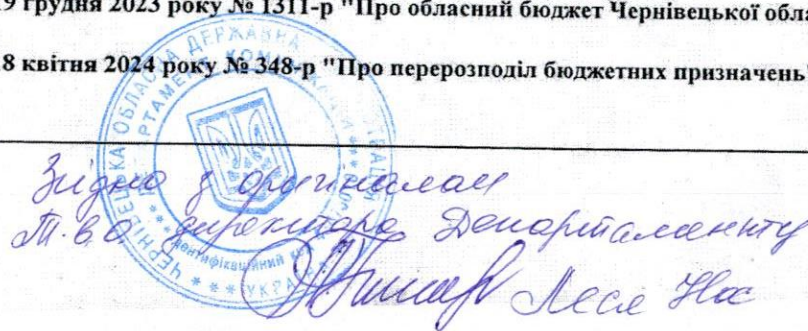 19 грудня 2023 року № 1311-р "Про обласний бюджет Чернівецької обла
8 квітня 2024 року № 348-р "Про перерозподіл бюджетних призначень"
ЧЕРНІВЕЦЬКА ОБЛАСНА ДЕРЖАВНА
ДЕПАРТАМЕНТ КОМ
Ідентифікаційний
УКРАЇНА
Згідно з оригіналом
Т.в.о. директора Департаменту
Леся Нос